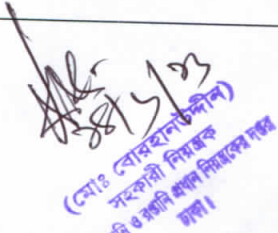 (মোঃ বোরহান উদ্দীন)
সহকারী নিয়ন্ত্রক
ও রপ্তানি প্রধান নিয়ন্ত্রকের দপ্তর
ঢাকা।